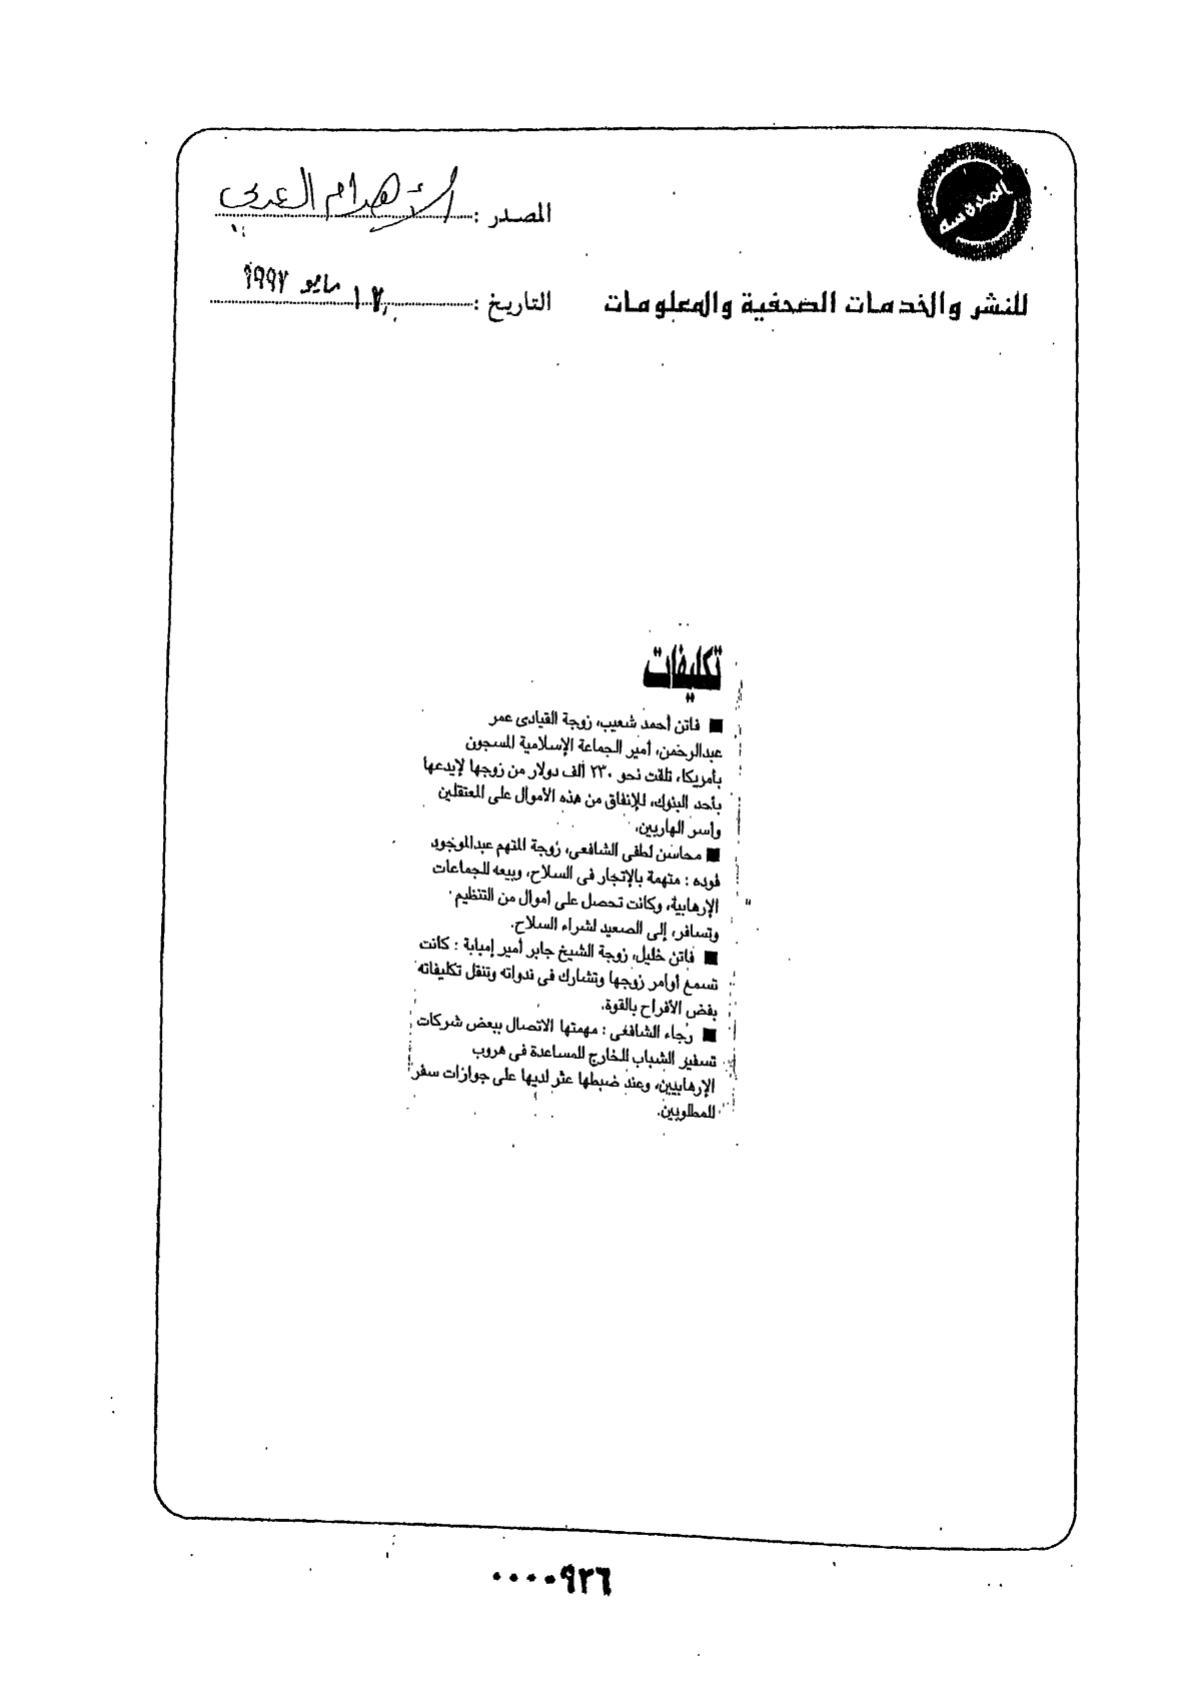 المصدر : الأهرام العربي
للنشر والخدمات الصحفية والمعلومات
التاريخ : ١٧ مايو ١٩٩٧
تكليفات
■ فاتن أحمد شعيب، زوجة القيادى عمر
عبدالرحمن، أمير الجماعة الإسلامية المسجون
بأمريكا، تلقت نحو ٢٣٠ ألف دولار من زوجها لإيدعها
بأحد البنوك، للإنفاق من هذه الأموال على المعتقلين
وأسر الهاربين.
■ محاسن لطفى الشافعى، زوجة المتهم عبدالموجود
فوده : متهمة بالإتجار فى السلاح، وبيعه للجماعات
الإرهابية، وكانت تحصل على أموال من التنظيم
وتسافر، إلى الصعيد لشراء السلاح.
■ فاتن خليل، زوجة الشيخ جابر أمير إمبابة : كانت
تسمع أوامر زوجها وتشارك فى ندواته وتنقل تكليفاته
بفض الأفراح بالقوة.
■ رجاء الشافعى : مهمتها الاتصال ببعض شركات
تسفير الشباب للخارج للمساعدة فى هروب
الإرهابيين، وعند ضبطها عثر لديها على جوازات سفر
للمطلوبين.
٠٠٠٠٩٢٦